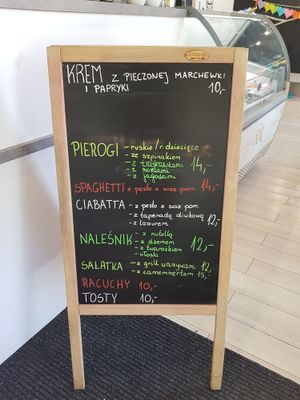 KREM Z PIECZONEJ MARCHEWKI
I PAPRYKI 10,-
PIEROGI - ruskie / r. dziecięce
- ze szpinakiem
- z truskawkami 14,-
- z
- z jagodami
SPAGHETTI - pesto + susz. pom. 14,-
CIABATTA - z pesto + susz. pom.
- z tapenadą oliwkową 12,-
- z łazurem
NALEŚNIK - z nutellą
- z dżemem 12,-
- z twarożkiem
- włoski
SAŁATKA - z grill warzywam 12,-
- z camembertem 15,-
RACUCHY 10,-
TOSTY 10,-